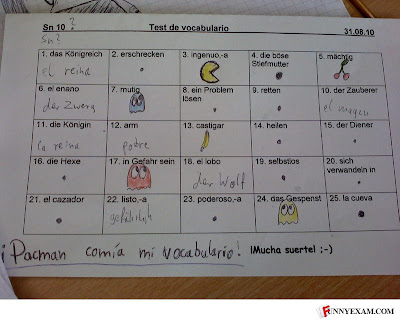 Sn 10 ? Test de vocabulario 31.08.10
Sn?
1. das Königreich 2. erschrecken 3. ingenuo,-a 4. die böse Stiefmutter 5. mächtig
el reina
6. el enano 7. mutig 8. ein Problem lösen 9. retten 10. der Zauberer
der Zwerg
11. die Königin 12. arm 13. castigar 14. heilen 15. der Diener
la reina pobre
16. die Hexe 17. in Gefahr sein 18. el lobo 19. selbstlos 20. sich verwandeln in
der Wolf
21. el cazador 22. listo,-a 23. poderoso,-a 24. das Gespenst 25. la cueva
gefährlich
¡Pacman comía mi vocabulario! ¡Mucha suerte! :-)
FUNNYEXAM.COM